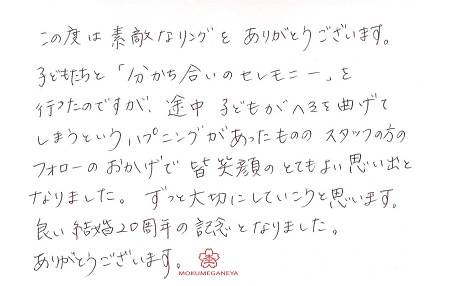 この度は素敵なリングを ありがとうございます。
子どもたちと「分かち合いのセレモニー」を
行ったのですが、途中 子どもがヘソを曲げて
しまうというハプニングがあったものの スタッフの方の
フォローのおかげで 皆笑顔の とてもよい思い出と
なりました。 ずっと大切にしていこうと思います。
良い結婚20周年の記念となりました。
ありがとうございます。
MOKUMEGANEYA